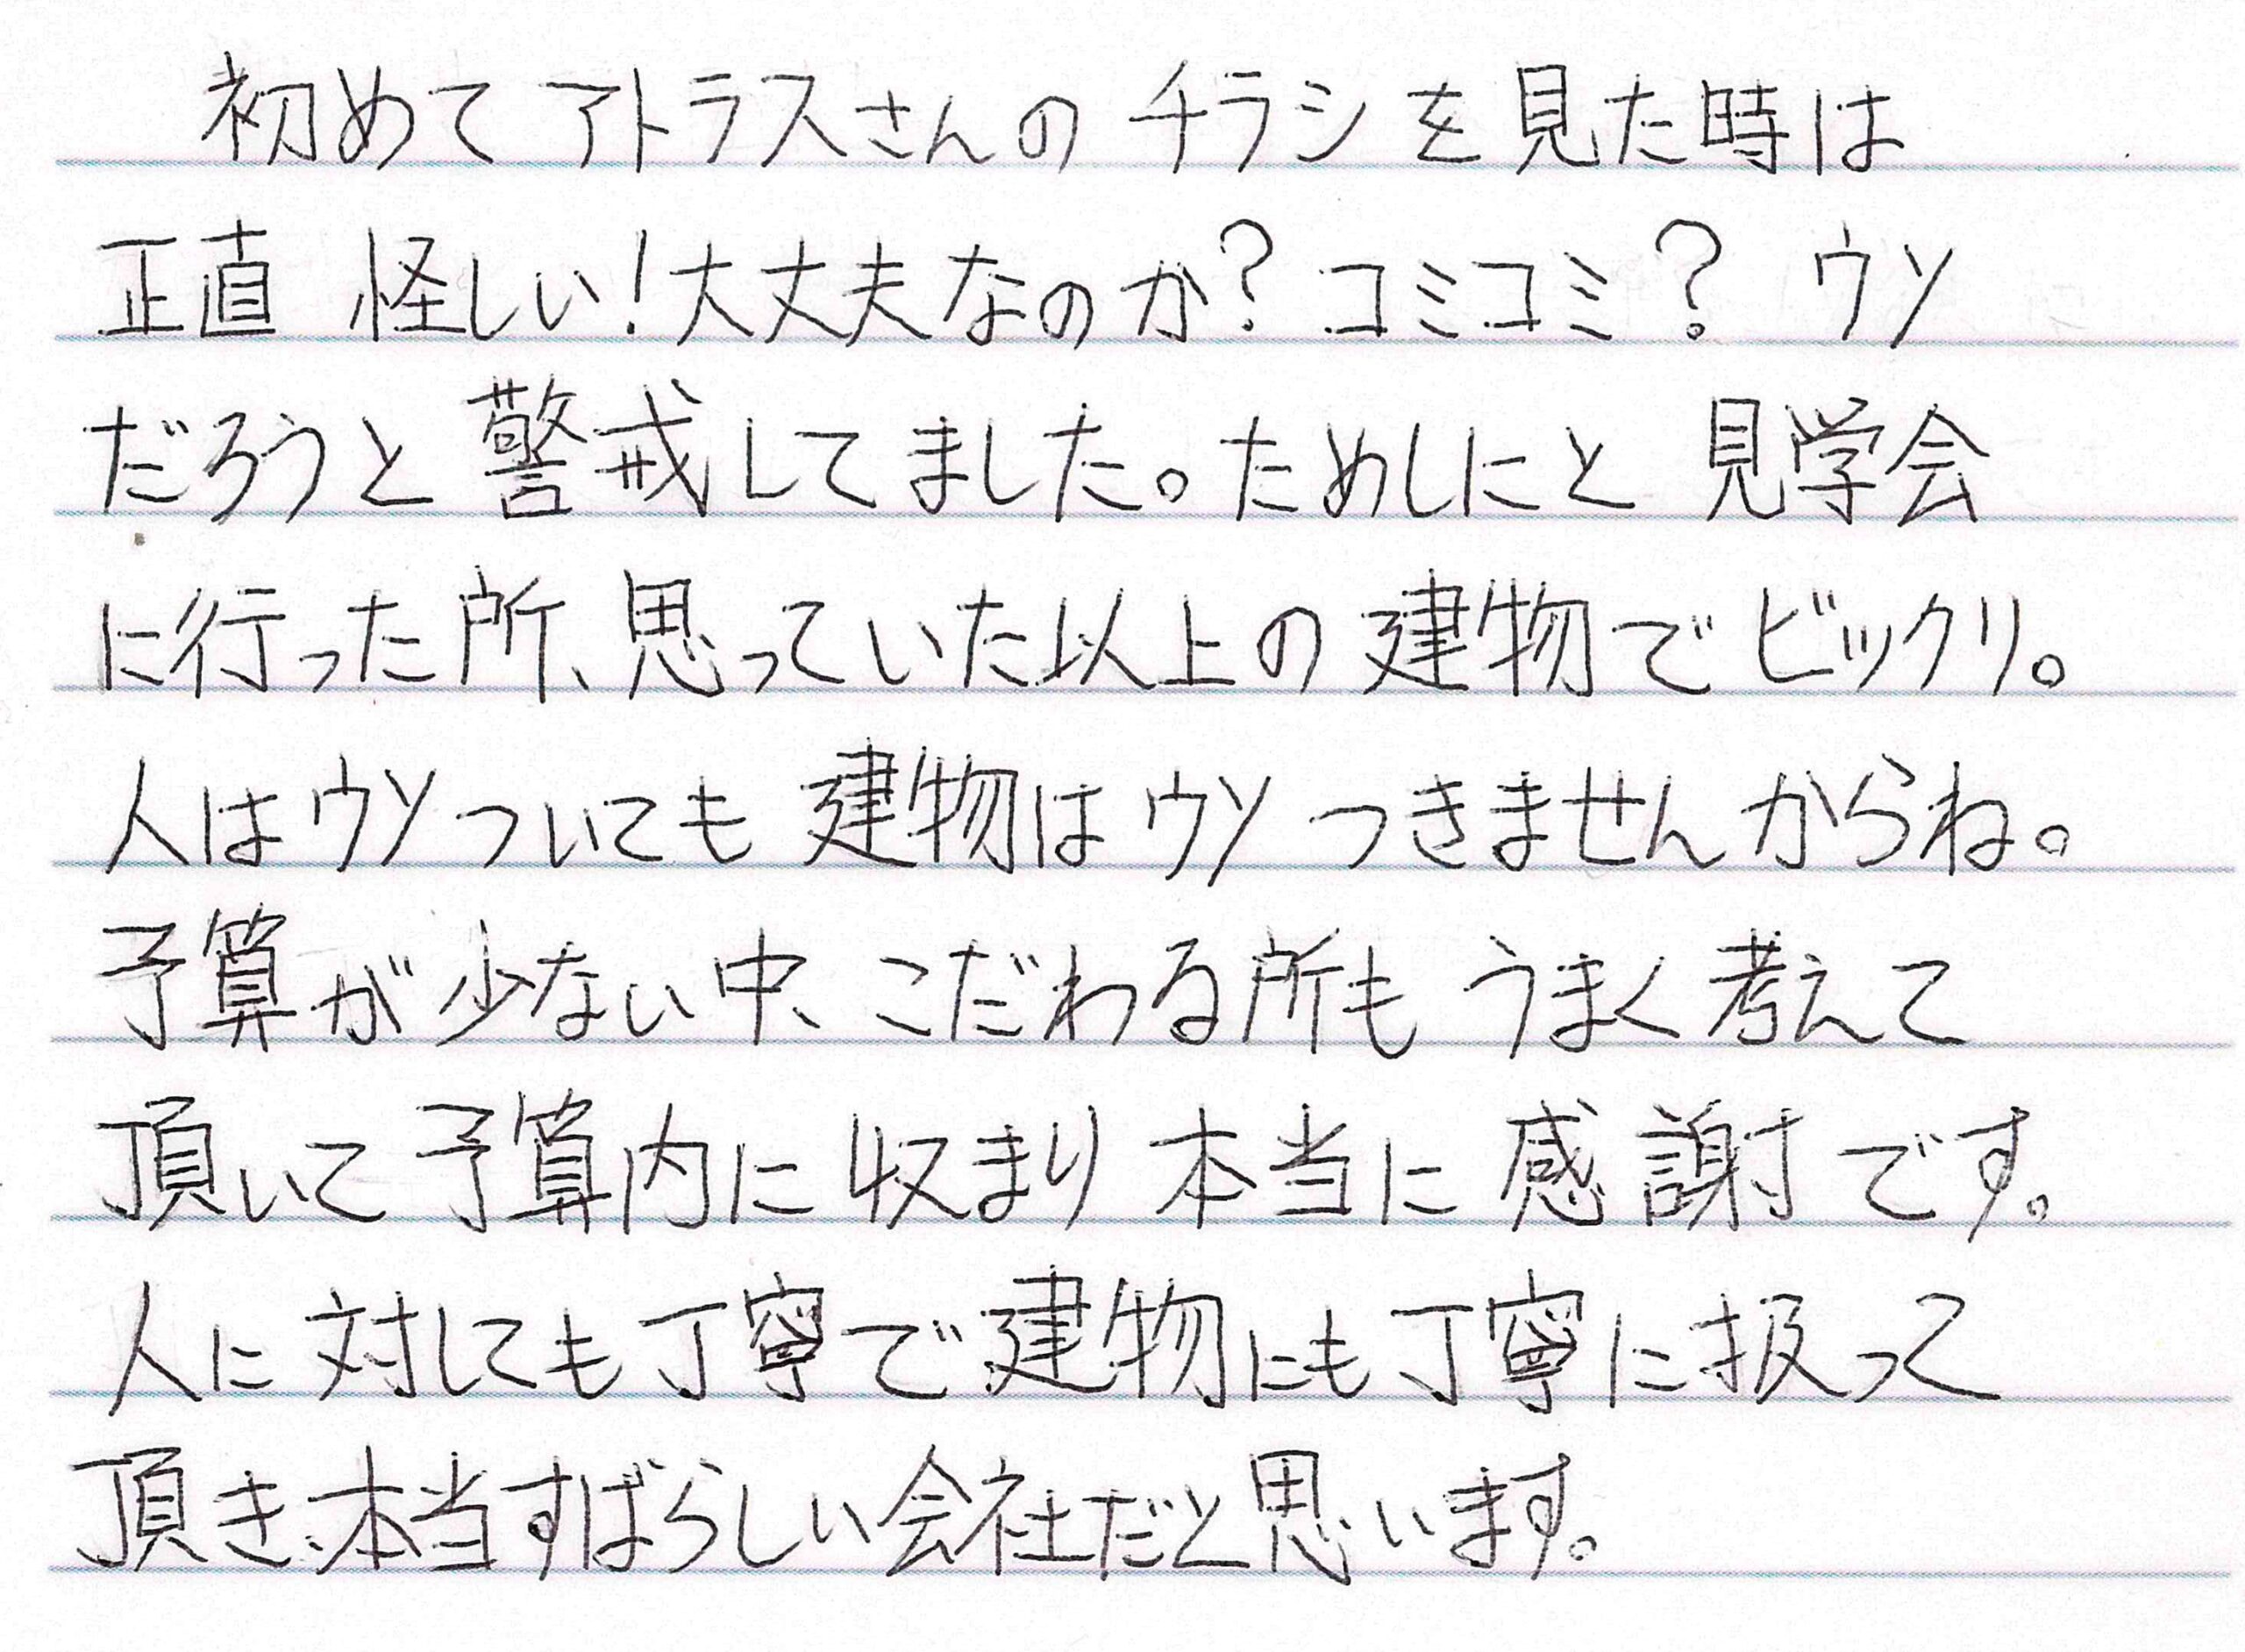 初めて アトラスさんの チラシを見た時は
正直 怪しい!大丈夫なのか?コミコミ? ウソ
だろうと 警戒してました。ためしにと 見学会
に行った所、思っていた以上の建物でビックリ。
人はウソついても 建物はウソ つきませんからね。
予算が少ない中、こだわる所も うまく考えて
頂いて予算内に収まり 本当に 感謝です。
人に対しても丁寧で建物にも丁寧に扱って
頂き、本当すばらしい会社だと思います。